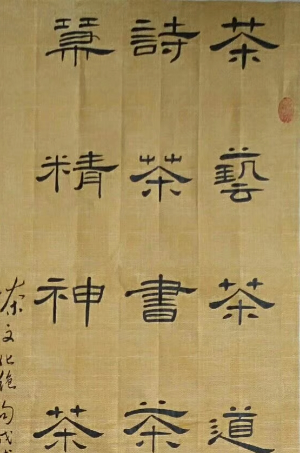 茶藝茶道
詩茶書茶
精神茶
茶文化絕句戊